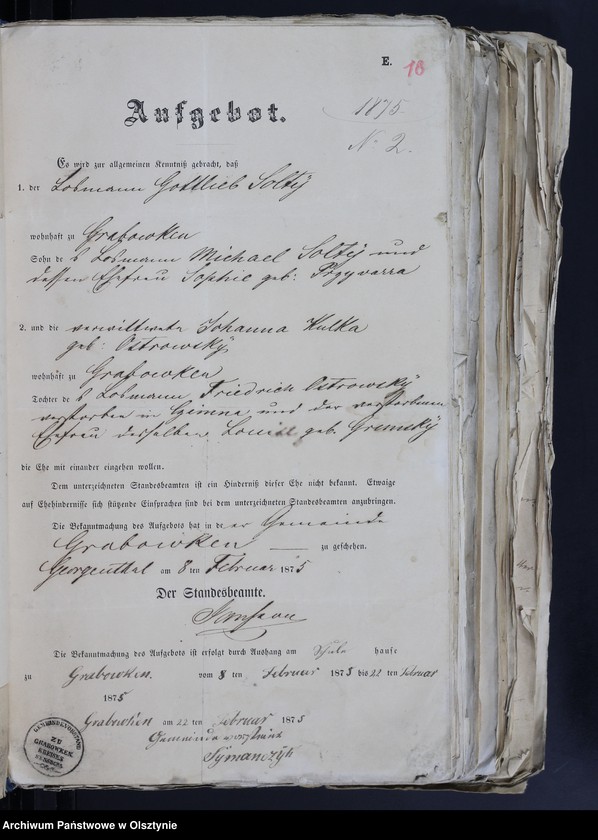 E.
18
Aufgebot.
1875
No 2.
Es wird zur allgemeinen Kenntniß gebracht, daß
1. der Losmann Gottlieb Soltÿ
wohnhaft zu Grabowken
Sohn des Losmann Michael Soltÿ und
dessen Ehefrau Sophie geb: Przyvarra
2. und die verwittwete Johanna Kulka
geb: Ostrowskÿ
wohnhaft zu Grabowken
Tochter des Losmann Friedrich Ostrowskÿ
verstorben in und der verstorbenen
Ehefrau desselben Louise geb.
die Ehe mit einander eingehen wollen.
Dem unterzeichneten Standesbeamten ist ein Hinderniß dieser Ehe nicht bekannt. Etwaige
auf Ehehindernisse sich stützende Einsprachen sind bei dem unterzeichneten Standesbeamten anzubringen.
Die Bekanntmachung des Aufgebots hat in de er Gemeinde
Grabowken zu geschehen.
Georgenthal am 8 ten Februar 1875
Der Standesbeamte.
Die Bekanntmachung des Aufgebots ist erfolgt durch Aushang am Schul hause
zu Grabowken vom 8 ten Februar 1875 bis 22 ten Februar
1875
Grabowken am 22 ten Februar 1875
Gemeindevorstand
Symanczyk
GEMEINDEVORSTAND
ZU
GRABOWKEN
KREISES
SENSBURG
Archiwum Państwowe w Olsztynie